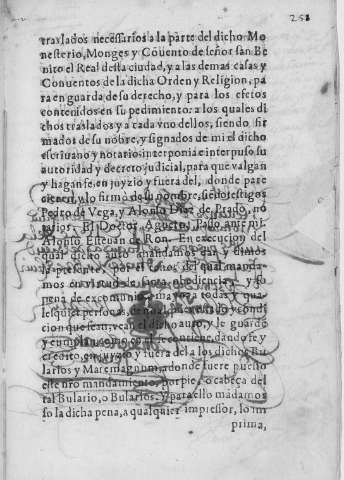 251
traslados necessarios a la parte del dicho Mo
nesterio, Monges y Cõuento de señor san Be
nito el Real desta ciudad, y a las demas casas y
Conuentos de la dicha Orden y Religion, pa
ra en guarda de su derecho, y para los efetos
contenidos en su pedimiento: a los quales di
chos traslados y a cada vno dellos, siendo fir
mados de su nõbre, y signados de mi el dicho
escriuano y notario interponia e interpuso su
autoridad y decreto judicial, para que valgan
y hagan fe en juyzio y fuera del, donde pare
cieren, y lo firmò de su nombre, siendo testigos
Pedro de Vega, y Alonso Diaz de Prado, no
tarios. El Doctor Agustin Passo ante mi.
Alonso Esteuan de Ron. En execucion del
qual dicho auto mandamos dar y dimos
la presente, por el tenor del qual manda-
mos en virtud de santa obediencia y so
pena de excomunion mayor a todas y qua-
lesquier personas, de estado y condi
cion que sean, vean el dicho auto, y le guardẽ
y cumplan como en el se contiene, dando fe y
credito, en juyzio y fuera del a los dichos Bu
larios y Maremagnum, adonde fuere puesto
este nro mandamiento, por pie, o cabeça del
tal Bulario, o Bularios. y para ello mãdamos
so la dicha pena, a qualquier impressor, lo im
prima,